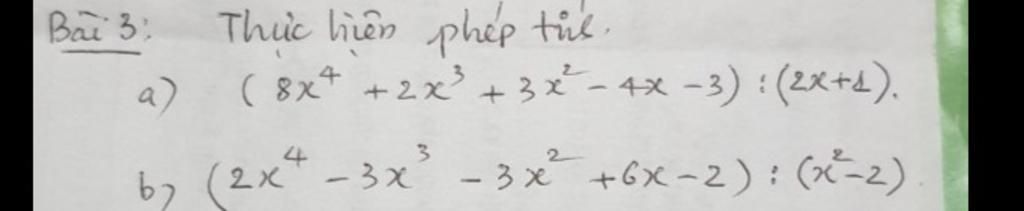 Bài 3: Thực hiện phép tính.
a) (8x⁴ + 2x³ + 3x² - 4x - 3) : (2x+1).
b) (2x⁴ - 3x³ - 3x² + 6x - 2) : (x² - 2)